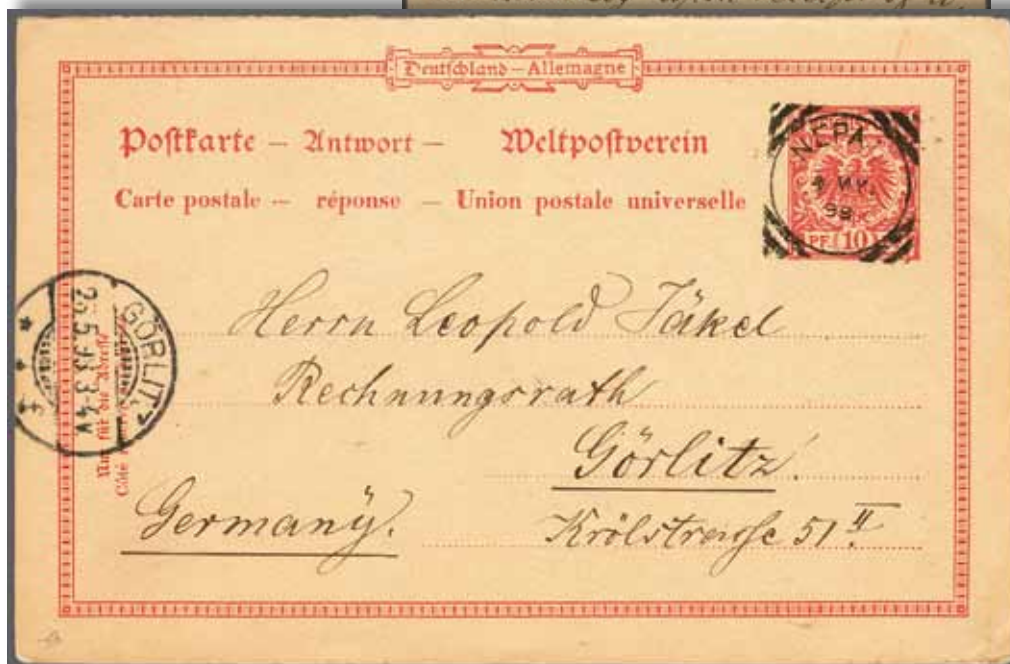 Deutschland – Allemagne
Postkarte – Antwort – Weltpostverein
Carte postale – réponse – Union postale universelle
NEPA
98
PF 10
GÖRLITZ
3-4N
Nur für die Adresse
Côté
Herrn Leopold Jäkel
Rechnungsrath
Görlitz.
Germany.
Krölstrasse 51 II